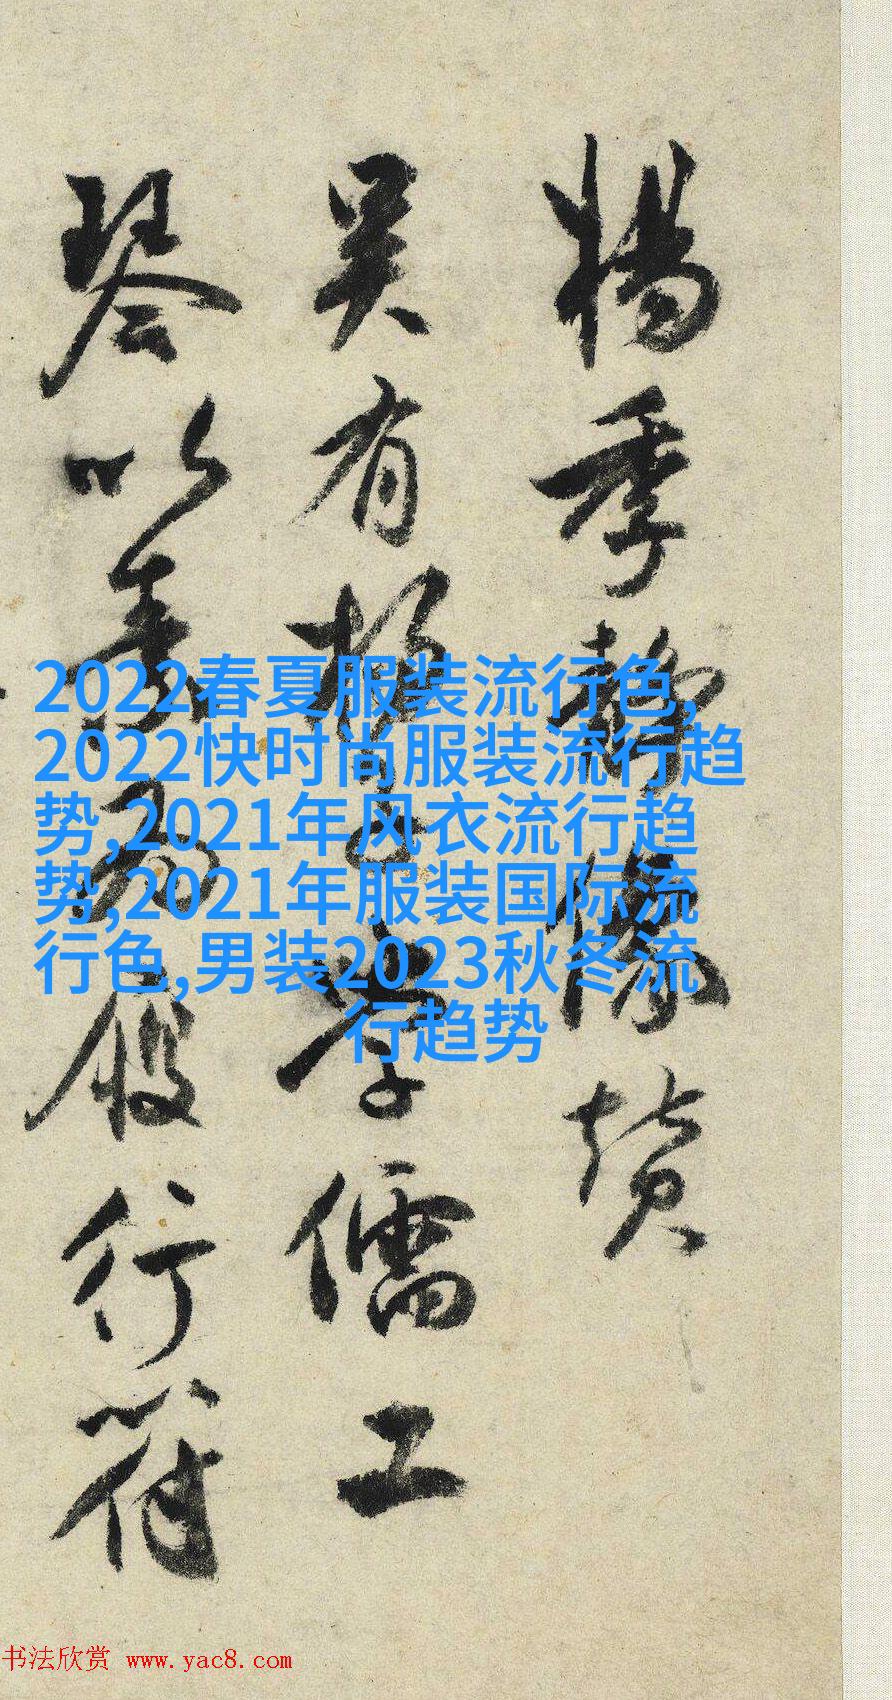 楊季靜像贊
吳有楊子學儒工
琴以素為履行符
2022春夏服装流行色,
2022快时尚服装流行趋
势,2021年风衣流行趋
势,2021年服装国际流
行色,男装2023秋冬流
行趋势
书法欣赏 www.yac8.com